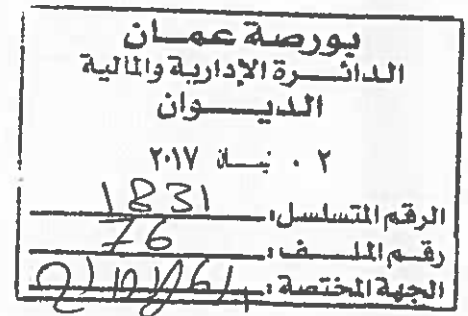 بورصة عمان
الدائرة الإدارية والمالية
الديوان
٠٢ نيسان ٢٠١٧
الرقم المتسلسل: 1831
رقم الملف: 76
الجهة المختصة: